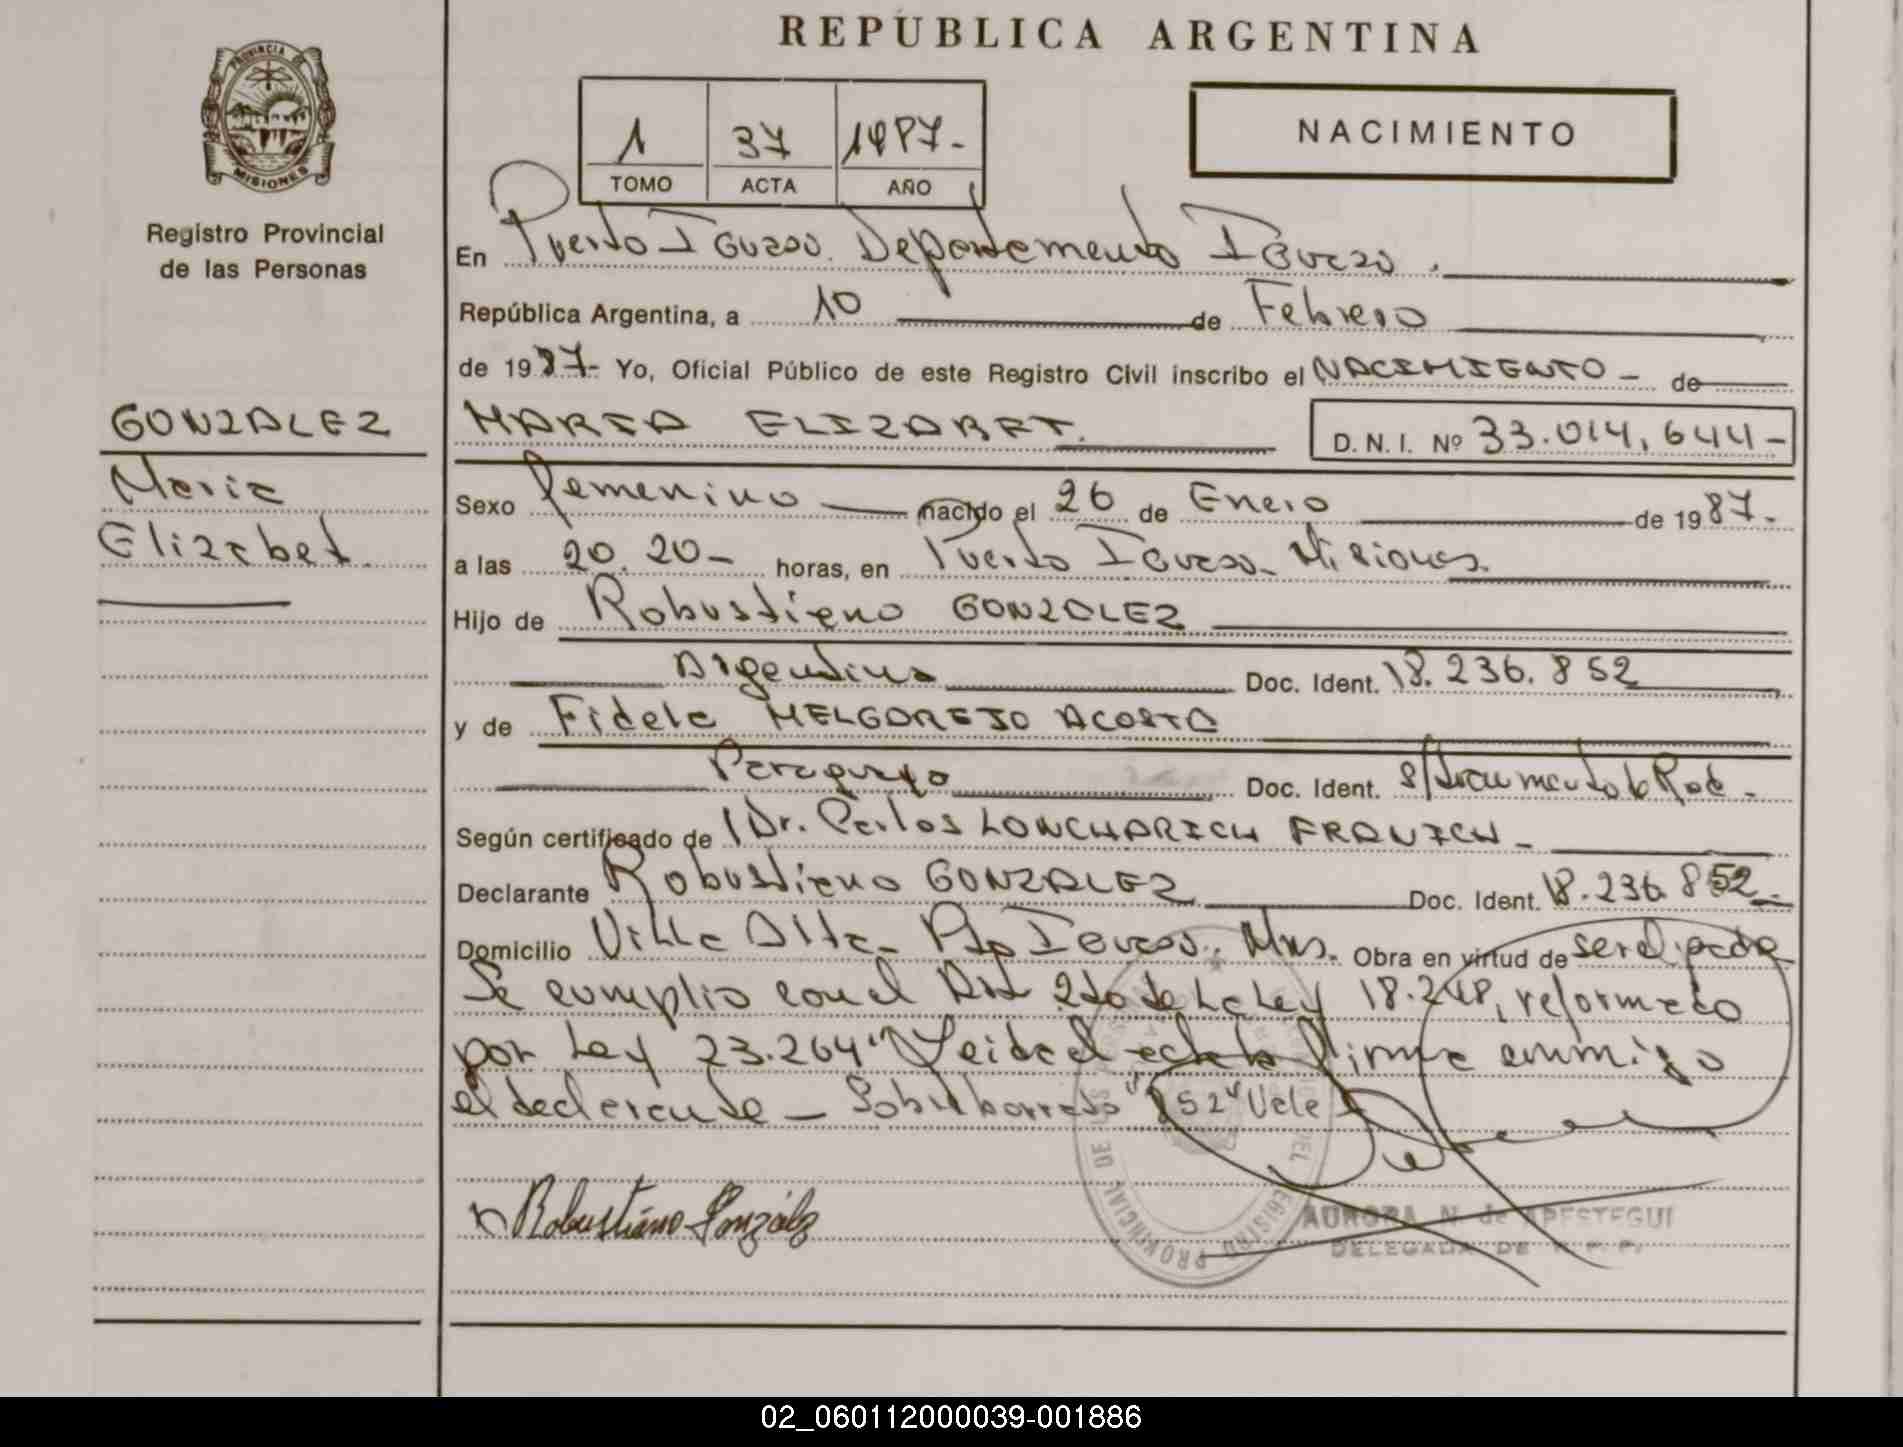 REPÚBLICA ARGENTINA
PROVINCIA DE
MISIONES
Registro Provincial
de las Personas
1 37 1987-
TOMO ACTA AÑO
NACIMIENTO
En Puerto Iguazu. Departamento Iguazu.
República Argentina, a 10 de Febrero
de 1987- Yo, Oficial Público de este Registro Civil inscribo el NACIMIENTO - de
GONZALEZ
Maria
Elizabet.
MARIA ELIZABET. D. N. I. Nº 33.014.644-
Sexo femenino nacido el 26 de Enero de 1987.
a las 20.20- horas, en Puerto Iguazu- Misiones.
Hijo de Robustiano GONZALEZ
Argentino Doc. Ident. 18.236.852
y de Fidela MELGAREJO ACOSTA
Paraguaya Doc. Ident. s/documento
Según certificado de Dr. Carlos LONCHARICH FRANICH -
Declarante Robustiano GONZALEZ Doc. Ident. 18.236.852-
Domicilio Villa Alta- Pto Iguazu. Mns. Obra en virtud de ser el padre
Se cumplio con el Art 2do de la Ley 18.248, reformado
por Ley 23.264" Leida el acta la firma conmigo
el declarante - Sobreborrado "852" Vale
Robustiano González
PROVINCIAL DE LAS
REGISTRO DEL
AURORA N. de APESTEGUI
DELEGADA DE R. P. P.
02_060112000039-001886